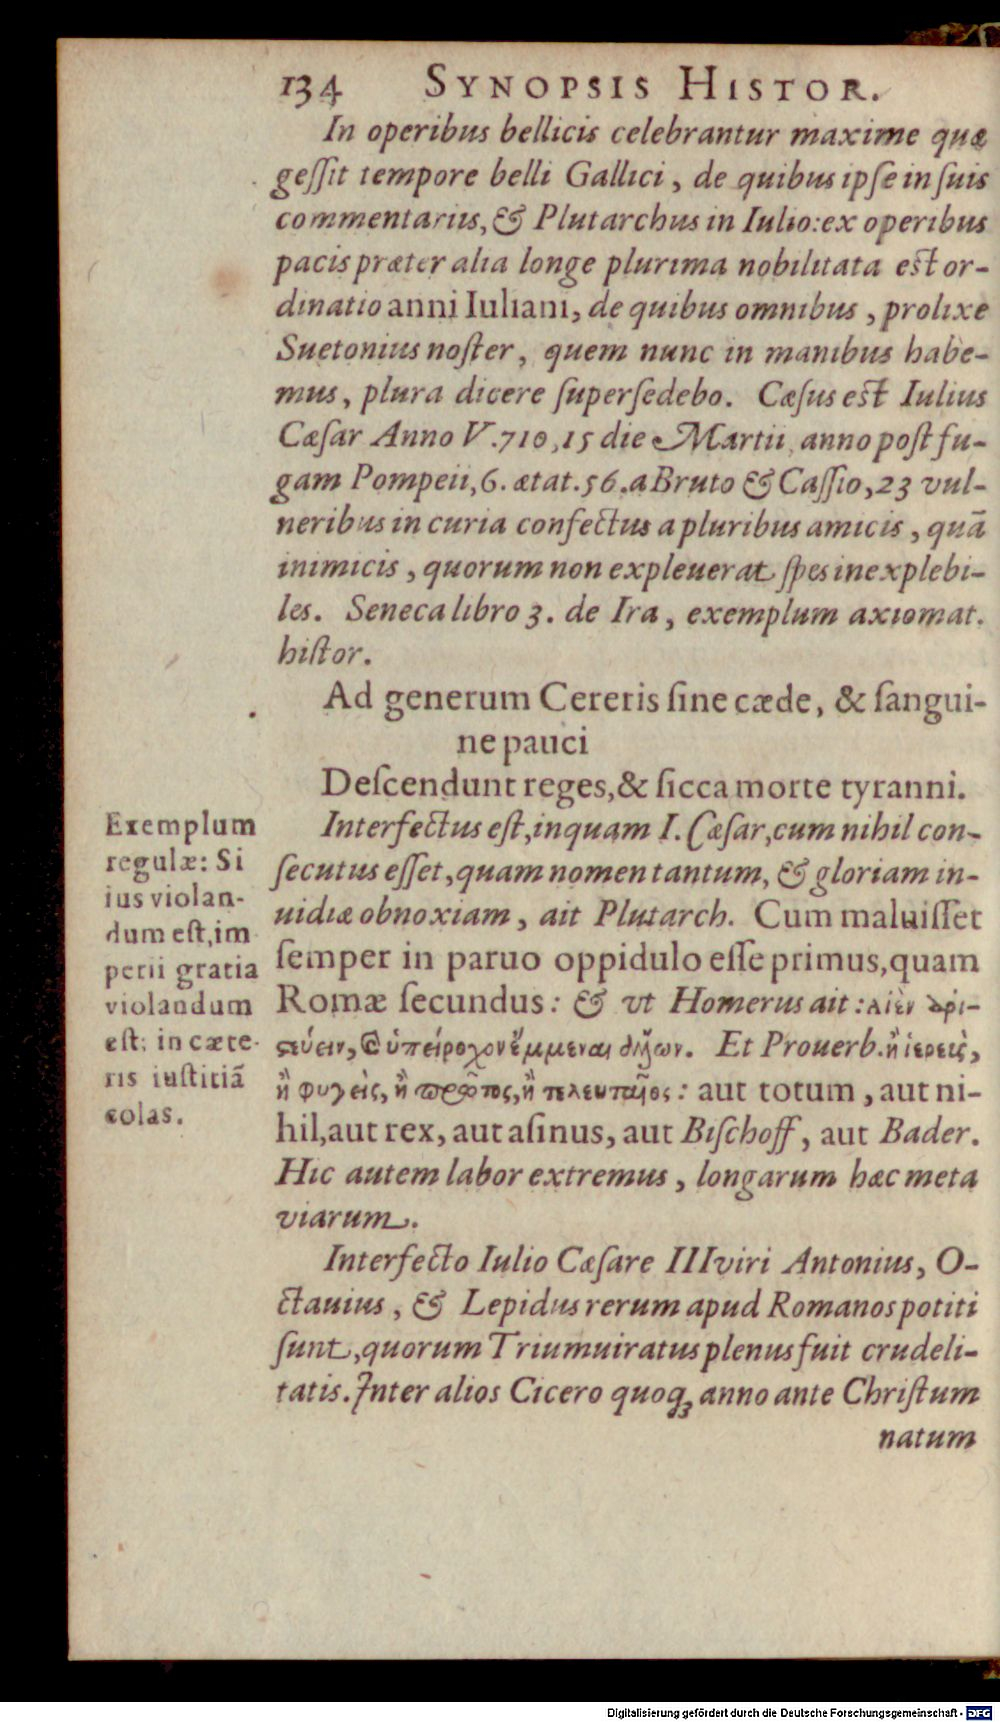 134 SYNOPSIS HISTOR.
In operibus bellicis celebrantur maxime quæ
geſſit tempore belli Gallici, de quibus ipſe in ſuis
commentariis, & Plutarchus in Iulio: ex operibus
pacis præter alia longe plurima nobilitata est or-
dinatio anni Iuliani, de quibus omnibus, prolixe
Suetonius noſter, quem nunc in manibus habe-
mus, plura dicere ſuperſedebo. Cæſus est Iulius
Cæſar Anno V. 710, 15 die Martii, anno poſt fu-
gam Pompeii, 6. ætat. 56. a Bruto & Caſſio, 23 vul-
neribus in curia confectus a pluribus amicis, quã
inimicis, quorum non expleuerat ſpes inexplebi-
les. Seneca libro 3. de Ira, exemplum axiomat.
hiſtor.
Ad generum Cereris ſine cæde, & ſangui-
ne pauci
Deſcendunt reges, & ſicca morte tyranni.
Exemplum
regulæ: Si
ius violan-
dum eſt, im
perii gratia
violandum
eſt: in cæte-
ris iuſtitiã
colas.
Interfectus eſt, inquam I. Cæſar, cum nihil con-
ſecutus eſſet, quam nomen tantum, & gloriam in-
uidiæ obnoxiam, ait Plutarch. Cum maluiſſet
ſemper in paruo oppidulo eſſe primus, quam
Romæ ſecundus: & vt Homerus ait: αἰὲν ἀρι-
ςεύειν, & ὑπείροχον ἔμμεναι ἄλλων. Et Prouerb. ἢ ἱερεὶς,
ἢ φυγεὶς, ἢ πρῶτος, ἢ τελευταῖος: aut totum, aut ni-
hil, aut rex, aut aſinus, aut Biſchoff, aut Bader.
Hic autem labor extremus, longarum hæc meta
viarum.
Interfecto Iulio Cæſare IIIviri Antonius, O-
ctauius, & Lepidus rerum apud Romanos potiti
ſunt, quorum Triumuiratus plenus fuit crudeli-
tatis. Inter alios Cicero quoq; anno ante Chriſtum
natum
Digitalisierung gefördert durch die Deutsche Forschungsgemeinschaft - DFG